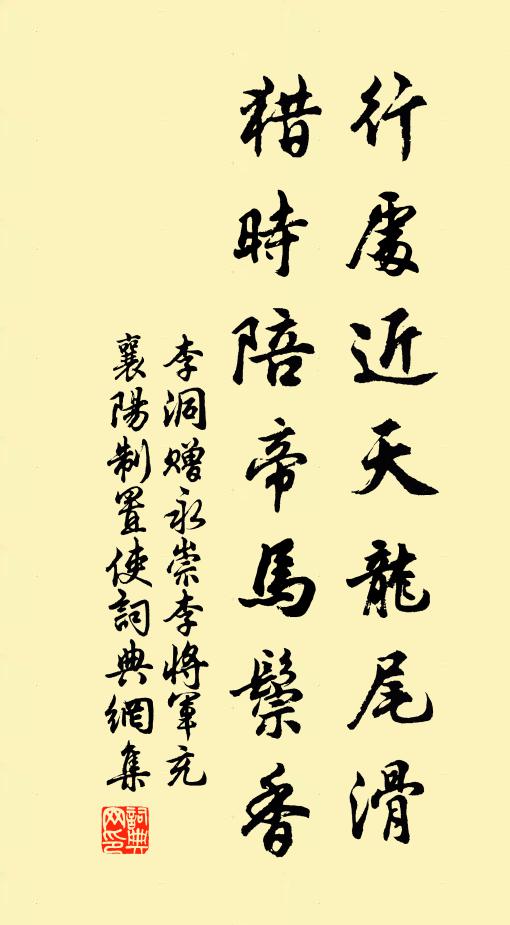 行處近天龍尾滑
猎時陪帝馬鬃香
李洞赠永崇李将軍充
襄陽制置使詞典網集
詞典网印